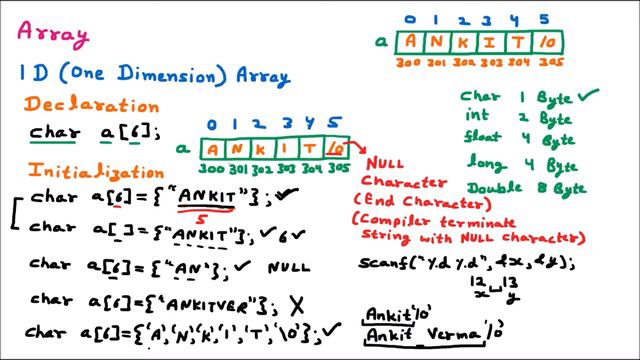 Array
1D (One Dimension) Array
Declaration
char a[6];
0 1 2 3 4 5
a A N K I T \0
300 301 302 303 304 305
Initialization
char a[6]={"ANKIT"}; ✓
5
char a[ ]={"ANKIT"}; ✓ 6 ✓
char a[6]={"AN"}; ✓ NULL
char a[6]={"ANKITVER"}; X
char a[6]={'A','N','K','I','T','\0'}; ✓
0 1 2 3 4 5
a A N K I T \0
300 301 302 303 304 305
Char 1 Byte ✓
int 2 Byte
float 4 Byte
long 4 Byte
Double 8 Byte
NULL
Character
(End Character)
(Compiler terminate
string with NULL character)
scanf("%d %d", &x, &y);
12 13
x y
Ankit'\0'
Ankit Verma'\0'